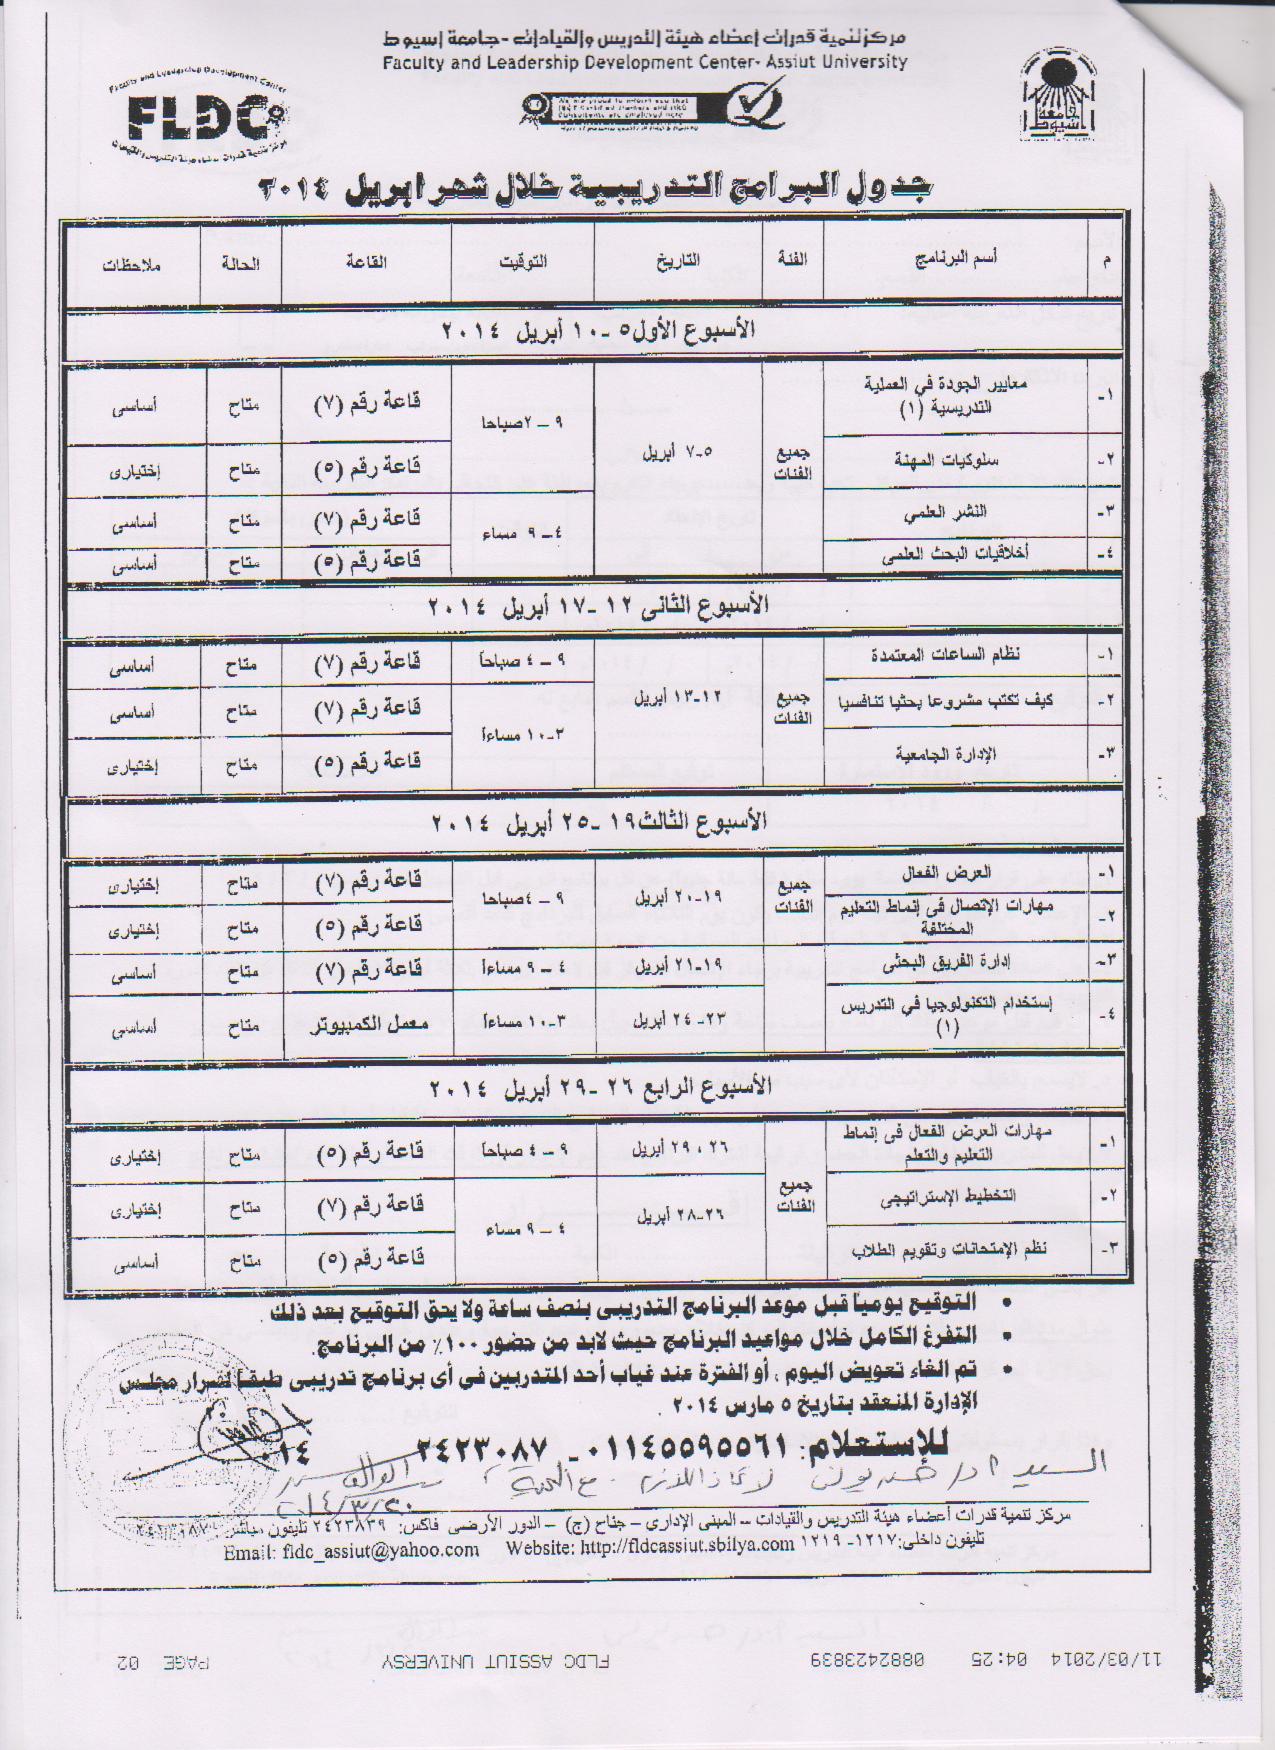 مركز تنمية قدرات إعضاء هيئة التدريس والقيادات -جامعة إسيوط
Faculty and Leadership Development Center- Assiut University
Faculty and Leadership Development Center
FLDC
جامعة أسيوط
جدول البرامج التدريبية خلال شهر ابريل ٢٠١٤
م أسم البرنامج الفئة التاريخ التوقيت القاعة الحالة ملاحظات
الأسبوع الأول٥ -١٠ أبريل ٢٠١٤
١- معايير الجودة في العملية التدريسية (١) جميع الفئات ٥-٧ أبريل ٩ – ٢صباحا قاعة رقم (٧) متاح أساسى
٢- سلوكيات المهنة قاعة رقم (٥) متاح إختيارى
٣- النشر العلمي ٤ – ٩ مساء قاعة رقم (٧) متاح أساسى
٤- أخلاقيات البحث العلمى قاعة رقم (٥) متاح أساسى
الأسبوع الثانى ١٢ -١٧ أبريل ٢٠١٤
١- نظام الساعات المعتمدة جميع الفئات ١٢-١٣ أبريل ٩ – ٤ صباحاً قاعة رقم (٧) متاح أساسى
٢- كيف تكتب مشروعا بحثيا تنافسيا ٣-١٠ مساءاً قاعة رقم (٧) متاح أساسى
٣- الإدارة الجامعية قاعة رقم (٥) متاح إختيارى
الأسبوع الثالث١٩ -٢٥ أبريل ٢٠١٤
١- العرض الفعال جميع الفئات ١٩-٢٠ أبريل ٩ – ٤صباحا قاعة رقم (٧) متاح إختيارى
٢- مهارات الإتصال فى إنماط التعليم المختلفة قاعة رقم (٥) متاح إختيارى
٣- إدارة الفريق البحثى ١٩-٢١ أبريل ٤ – ٩ مساءاً قاعة رقم (٧) متاح أساسى
٤- إستخدام التكنولوجيا في التدريس (١) ٢٣-٢٤ أبريل ٣-١٠ مساءاً معمل الكمبيوتر متاح أساسى
الأسبوع الرابع ٢٦ -٢٩ أبريل ٢٠١٤
١- مهارات العرض الفعال فى إنماط التعليم والتعلم جميع الفئات ٢٦ ، ٢٩ أبريل ٩ – ٤ صباحاً قاعة رقم (٥) متاح إختيارى
٢- التخطيط الإستراتيجى ٢٦-٢٨ أبريل ٤ – ٩ مساء قاعة رقم (٧) متاح إختيارى
٣- نظم الإمتحانات وتقويم الطلاب قاعة رقم (٥) متاح أساسى
• التوقيع يومياً قبل موعد البرنامج التدريبى بنصف ساعة ولا يحق التوقيع بعد ذلك .
• التفرغ الكامل خلال مواعيد البرنامج حيث لابد من حضور ١٠٠٪ من البرنامج.
• تم الغاء تعويض اليوم ، أو الفترة عند غياب أحد المتدربين فى أى برنامج تدريبى طبقاً لقرار مجلس
الإدارة المنعقد بتاريخ ٥ مارس ٢٠١٤ .
للإستعلام: ٠١١٤٥٥٩٥٥٦١ - ٢٤٢٣٠٨٧
٢٠١٤/٣/٢٠
مركز تنمية قدرات أعضاء هيئة التدريس والقيادات – المبنى الإدارى – جناح (ج) – الدور الأرضى فاكس: ٢٤٢٣٨٣٩ تليفون مباشر:
تليفون داخلى:١٢١٧- ١٢١٩ Website: http://fldcassiut.sbilya.com Email: fldc_assiut@yahoo.com
11/03/2014 04:25 0882423839 FLDC ASSIUT UNIVERSY PAGE 02